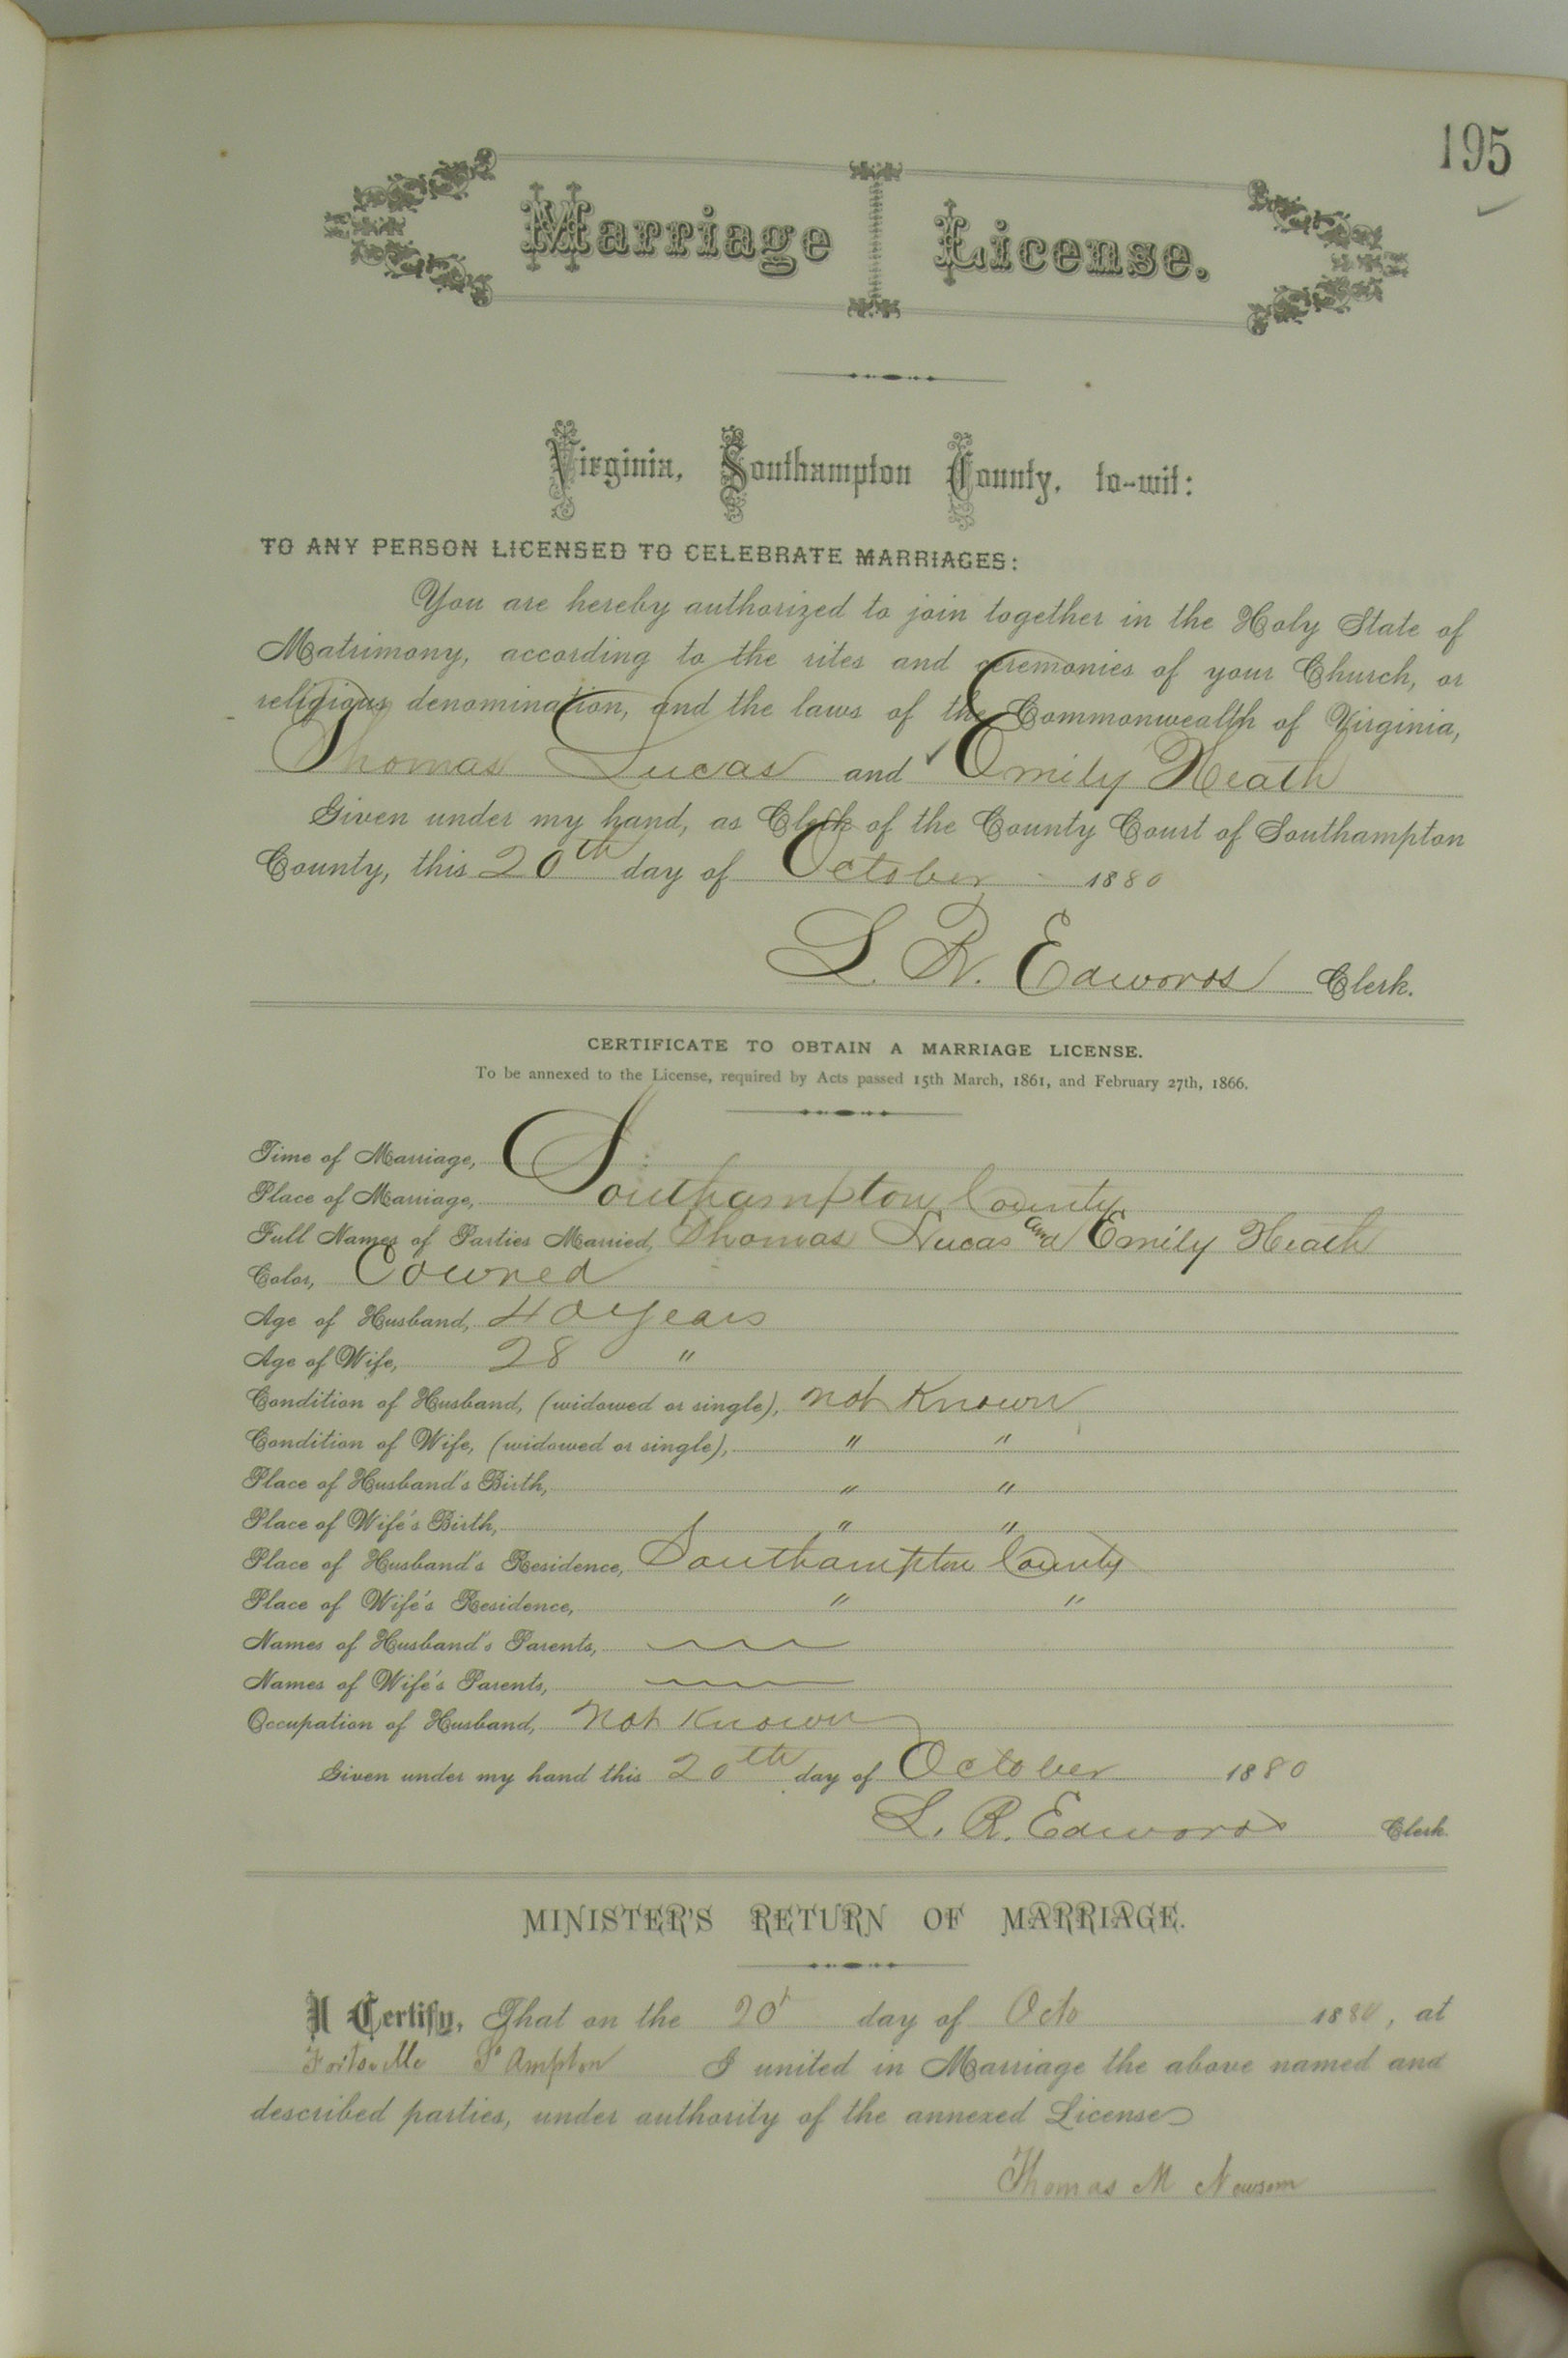 195
Marriage License.
Virginia, Southampton County, to-wit:
TO ANY PERSON LICENSED TO CELEBRATE MARRIAGES:
You are hereby authorized to join together in the Holy State of
Matrimony, according to the rites and ceremonies of your Church, or
religious denomination, and the laws of the Commonwealth of Virginia,
Thomas Lucas and Emily Heath
Given under my hand, as Clerk of the County Court of Southampton
County, this 20th day of October 1880
L. R. Edwards Clerk.
CERTIFICATE TO OBTAIN A MARRIAGE LICENSE.
To be annexed to the License, required by Acts passed 15th March, 1861, and February 27th, 1866.
Time of Marriage,
Place of Marriage, Southampton County
Full Names of Parties Married, Thomas Lucas and Emily Heath
Color, Colored
Age of Husband, 40 years
Age of Wife, 28 "
Condition of Husband, (widowed or single), not Known
Condition of Wife, (widowed or single), " "
Place of Husband's Birth, " "
Place of Wife's Birth, " "
Place of Husband's Residence, Southampton County
Place of Wife's Residence, " "
Names of Husband's Parents,
Names of Wife's Parents,
Occupation of Husband, Not Known
Given under my hand this 20th day of October 1880
L. R. Edwards Clerk
MINISTER'S RETURN OF MARRIAGE.
I Certify, That on the 20t day of Octo 1880, at
Fortsville S'Ampton I united in Marriage the above named and
described parties, under authority of the annexed License
Thomas M Newsom